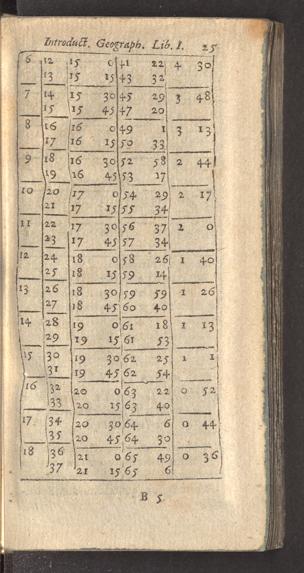 Introduct. Geograph. Lib. I. 25
6 12 15 0 41 22 4 30
13 15 15 43 32
7 14 15 30 45 29 3 48
15 15 45 47 20
8 16 16 0 49 1 3 13
17 16 15 50 33
9 18 16 30 52 58 2 44
19 16 45 53 17
10 20 17 0 54 29 2 17
21 17 15 55 34
11 22 17 30 56 37 2 0
23 17 45 57 34
12 24 18 0 58 26 1 40
25 18 15 59 14
13 26 18 30 59 59 1 26
27 18 45 60 40
14 28 19 0 61 18 1 13
29 19 15 61 53
15 30 19 30 62 25 1 1
31 19 45 62 54
16 32 20 0 63 22 0 52
33 20 15 63 40
17 34 20 30 64 6 0 44
35 20 45 64 30
18 36 21 0 65 49 0 36
37 21 15 65 6
B 5